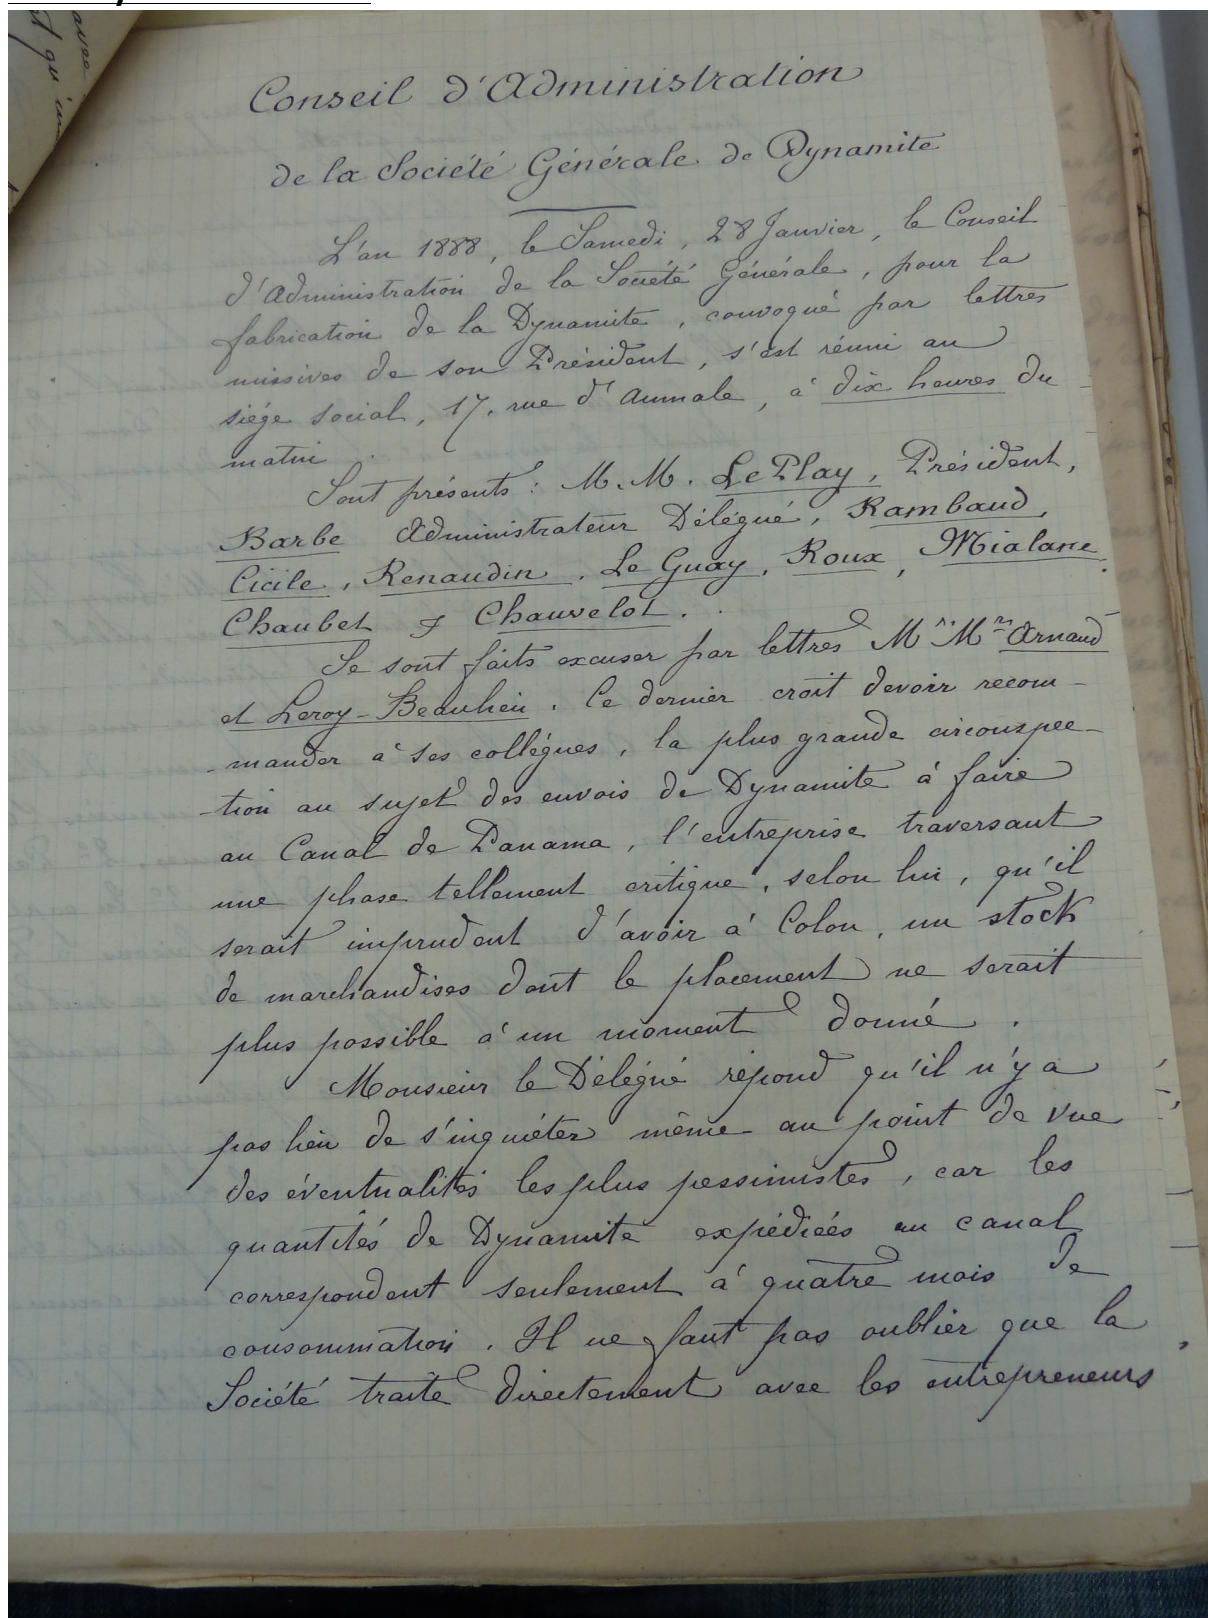 avec
qu'un
Conseil d'Administration
de la Société Générale de Dynamite
L'an 1888, le Samedi, 28 Janvier, le Conseil
d'Administration de la Société Générale, pour la
fabrication de la Dynamite, convoqué par lettres
missives de son Président, s'est réuni au
siége social, 17, rue d'Aumale, à dix heures du
matin.
Sont présents: M.M. Le Play, Président,
Barbe Administrateur Délégué, Rambaud,
Cicile, Renaudin, Le Guay, Roux, Mialane,
Chaubet & Chauvelot.
Se sont faits excuser par lettres M rs M rs Arnaud
et Leroy-Beaulieu. Ce dernier croit devoir recom-
-mander à ses collègues, la plus grande circonspec-
-tion au sujet des envois de Dynamite à faire
au Canal de Panama, l'entreprise traversant
une phase tellement critique, selon lui, qu'il
serait imprudent d'avoir à Colon, un stock
de marchandises dont le placement ne serait
plus possible à un moment donné.
Monsieur le Délégué répond qu'il n'y a
pas lieu de s'inquiéter même au point de vue
des éventualités les plus pessimistes, car les
quantités de Dynamite expédiées au canal
correspondent seulement à quatre mois de
consommation. Il ne faut pas oublier que la
Société traite directement avec les entrepreneurs